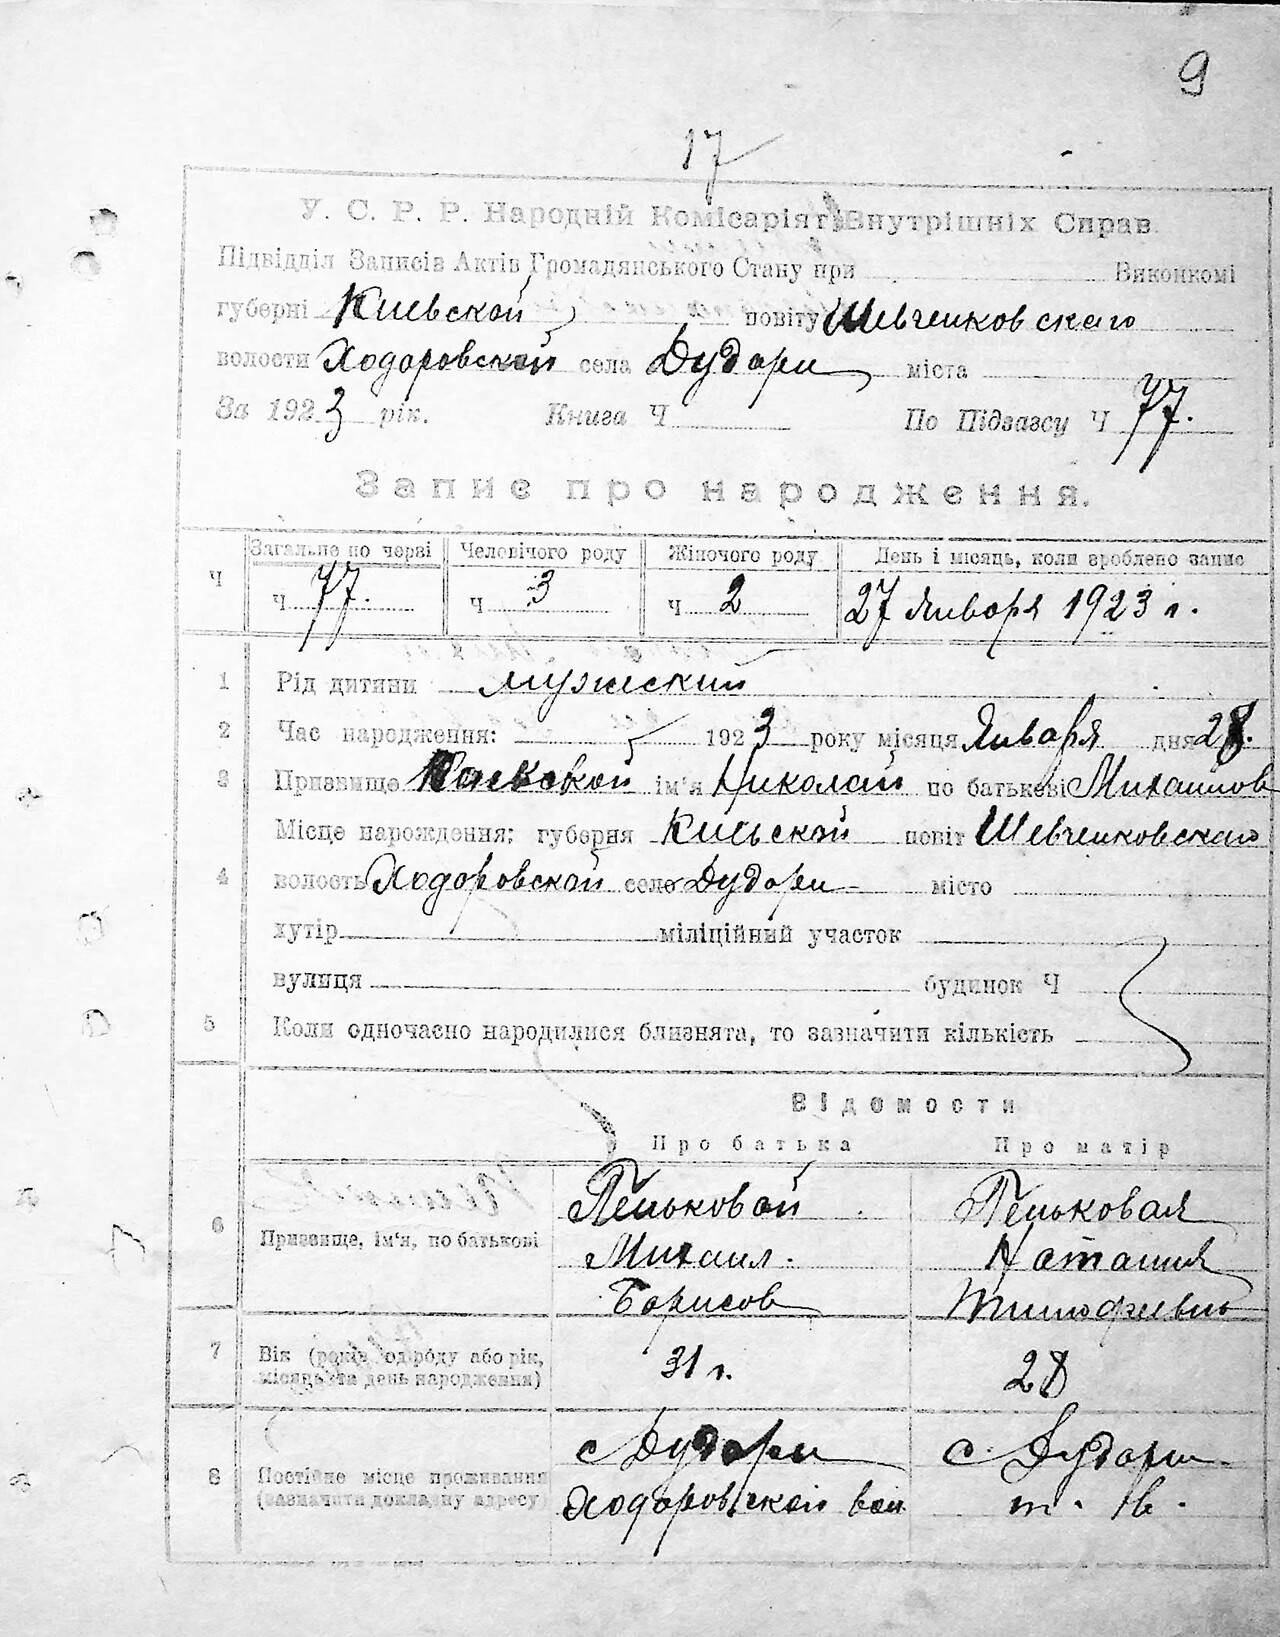 9
17
У. С. Р. Р. Народній Комісаріят Внутрішніх Справ.
Підвідділ Записів Актів Громадянського Стану при Виконкомі
губерні Киевской повіту Шевченковскаго
волости Ходоровской села Дудари міста
За 1923 рік. Книга Ч По Підзагсу Ч 77.
Запис про народження.
Ч Загальне по черві Чоловічого роду Жіночого роду День і місяць, коли зроблено запис
Ч 77. Ч 3 Ч 2 27 Января 1923 г.
1 Рід дитини мужеский
2 Час народження: 1923 року місяця Января дня
3 Призвище ім'я Николай по батькові Михаилов
Місце нарождення: губерня Киевской повіт Шевченковскаго
4 волость Ходоровской село Дудари місто
хутір міліційний участок
вулиця будинок Ч
5 Коли одночасно народилися близнята, то зазначити кількість
Відомости
Про батька Про матір
6 Призвище, ім'я, по батькові Пеньковой Пеньковая
Михаил. Наталия
Борисов Тимофиевна
7 Вік (років од роду або рік, місяць та день народження) 31 г. 28
8 Постійне місце проживання (зазначити докладну адресу) с Дудари с. Дудари
Ходоровской вол т. ж.